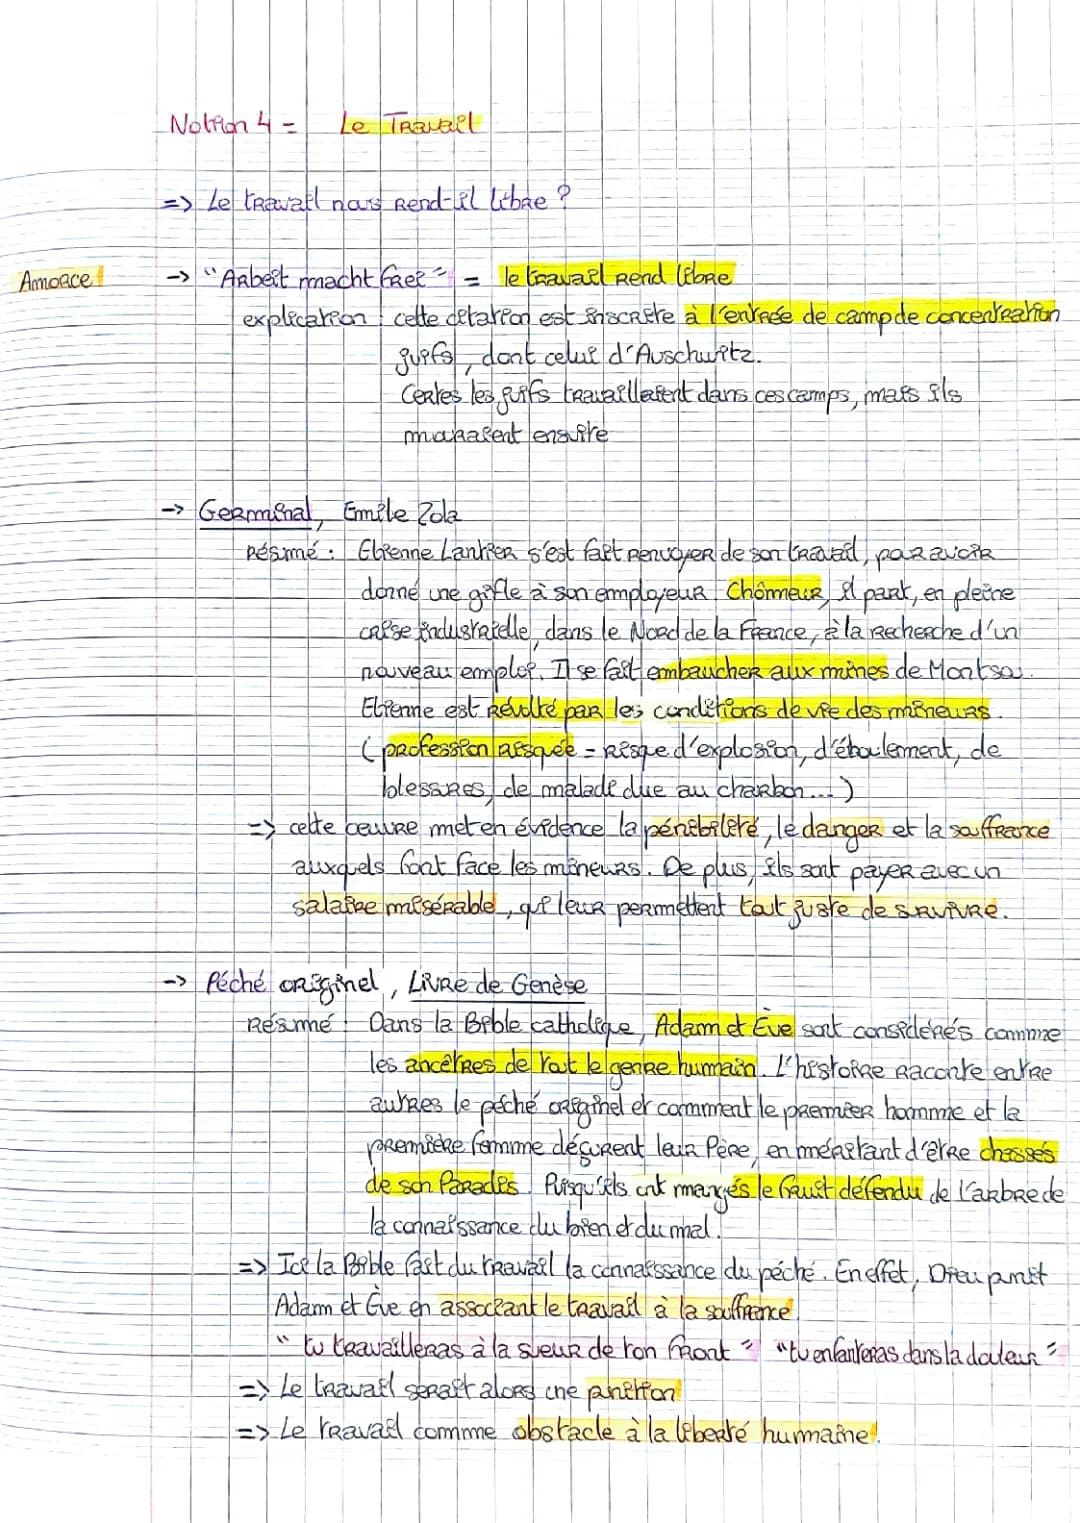 Notion 4 = Le Travail
=> Le travail nous rend-il libre ?
Amorce
-> "Arbeit macht frei" = le travail rend libre
explication : cette citation est inscrite à l'entrée de camp de concentration
juifs, dont celui d'Auschwitz.
Certes les juifs travaillaient dans ces camps, mais ils
mouraient ensuite
-> Germinal, Emile Zola
Résumé : Etienne Lantier s'est fait renvoyer de son travail, par avoir
donné une gifle à son employeur. Chômeur, il part, en pleine
crise industrielle, dans le Nord de la France, à la recherche d'un
nouveau emploi. Il se fait embaucher aux mines de Montsou.
Etienne est révolté par les conditions de vie des mineurs.
(profession risquée = risque d'explosion, d'éboulement, de
blessures, de maladie due au charbon...)
=> cette oeuvre met en évidence la pénibilité, le danger et la souffrance
auxquels font face les mineurs. De plus, ils sont payer avec un
salaire misérable, qui leur permettent tout juste de survivre.
-> Péché originel, Livre de Genèse
Résumé : Dans la Bible catholique, Adam et Eve sont considérés comme
les ancêtres de tout le genre humain. L'histoire raconte entre
autres le péché originel et comment le premier homme et la
première femme déçurent leur Père, en méritant d'être chassés
de son Paradis. Puisqu'ils ont mangés le fruit défendu de l'arbre de
la connaissance du bien et du mal.
=> Ici la Bible fait du travail la connaissance du péché. En effet, Dieu punit
Adam et Eve en associant le travail à la souffrance
"tu travailleras à la sueur de ton front" "tu enfanteras dans la douleur"
=> Le travail serait alors une punition
=> Le travail comme obstacle à la liberté humaine.